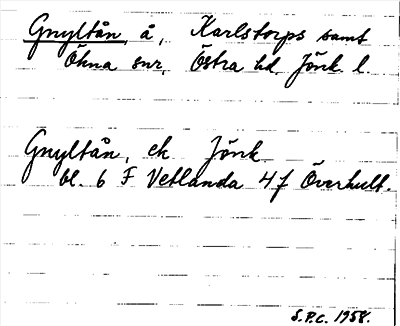 Gnyltån, å, Karlstorps samt
Ökna snr, Östra hd. Jönk. l.
Gnyltån, ek Jönk.
bl. 6 F Vetlanda 4f Överhult.
S.P.C. 1958.